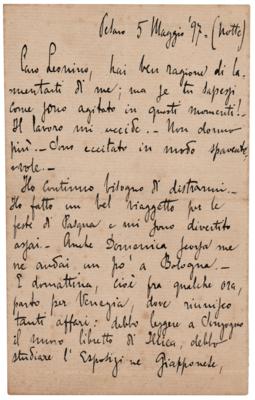 Pesaro 5 Maggio '97. (Notte)
Caro Leonino, hai ben ragione di la-
mentarti di me; ma se tu sapessi
come sono agitato in questi momenti!
Il lavoro mi uccide. - Non dormo
più. - Sono eccitato in modo spavente-
vole. -
Ho continuo bisogno di distrarmi. -
Ho fatto un bel viaggetto per le
feste di Pasqua e mi sono divertito
assai. - Anche Domenica scorsa me
ne andai un po' a Bologna. -
E domattina, cioè fra qualche ora,
parto per Venezia, dove riunisco
tanti affari: debbo leggere a Sonzogno
il nuovo libretto di Illica, debbo
studiare l'Esposizione Giapponese,